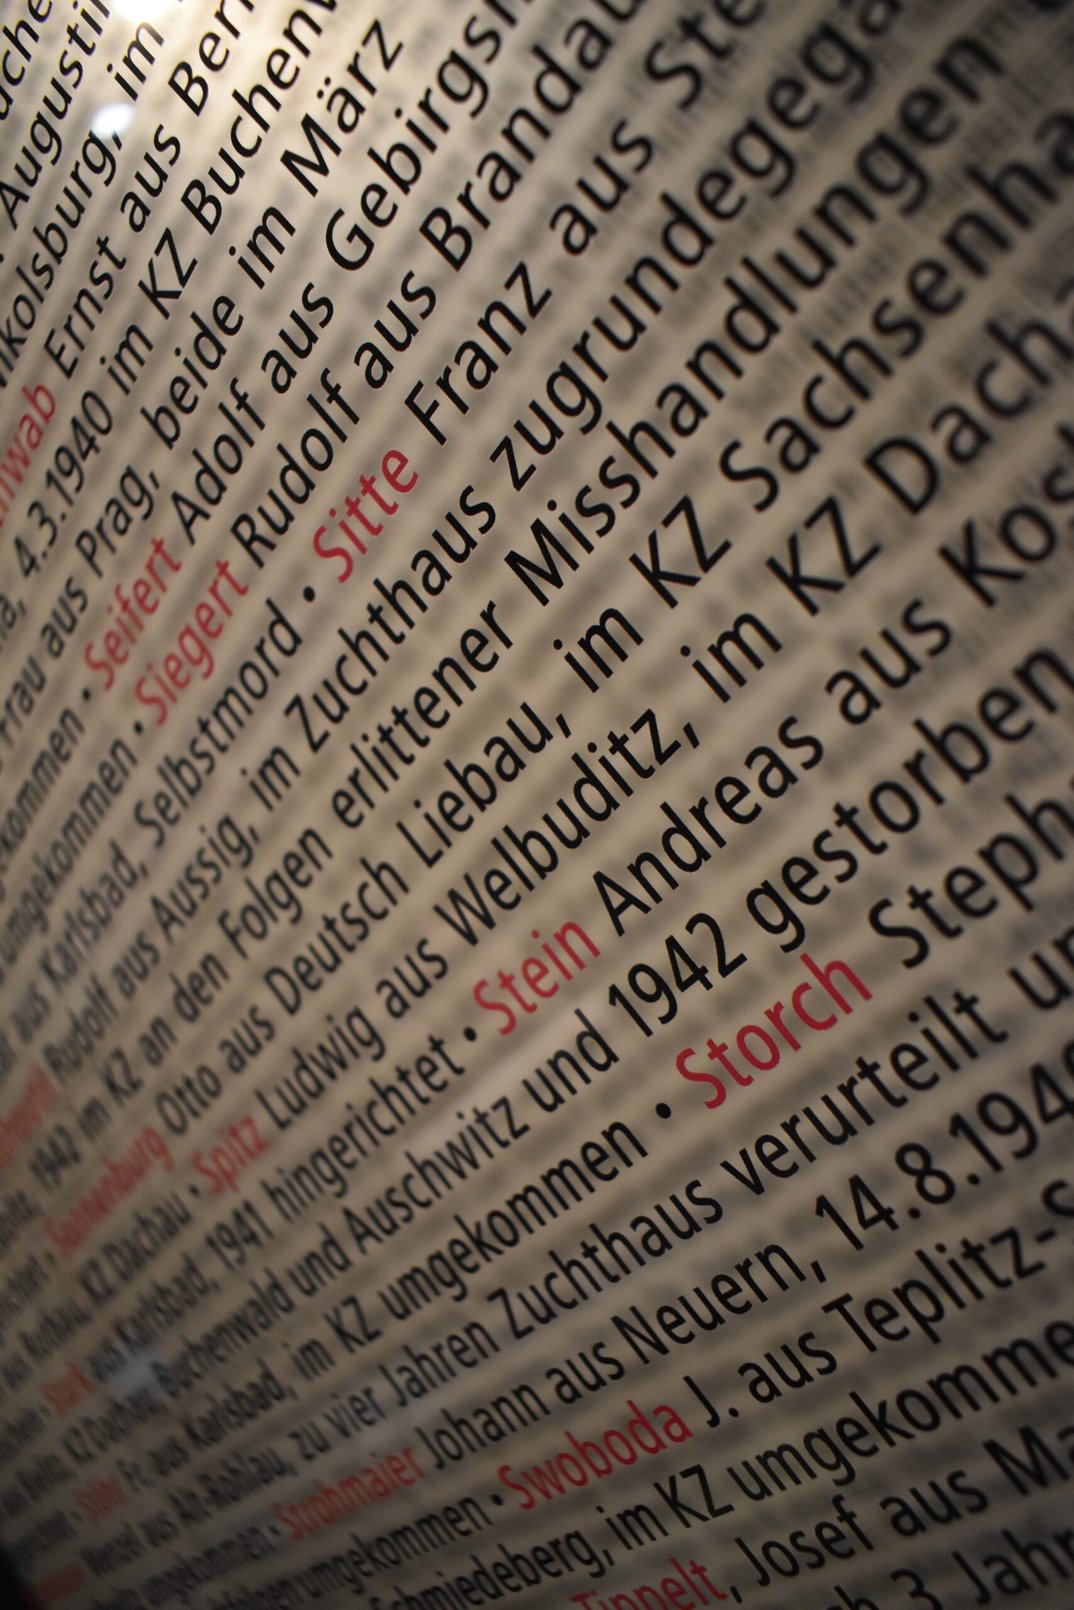 Augustin
ikolsburg, im
Ernst aus Bern
4.3.1940 im KZ Buchenw
Frau aus Prag, beide im März
• Seifert Adolf aus Gebirgsn
umgekommen • Siegert Rudolf aus Brandau
aus Karlsbad, Selbstmord • Sitte Franz aus Ste
Rudolf aus Aussig, im Zuchthaus zugrundegega
1942 im KZ an den Folgen erlittener Misshandlungen
Sonnenburg Otto aus Deutsch Liebau, im KZ Sachsenha
KZ Dachau • Spitz Ludwig aus Welbuditz, im KZ Dacha
Stark aus Karlsbad, 1941 hingerichtet • Stein Andreas aus Kost
KZ Dachau, Buchenwald und Auschwitz und 1942 gestorben
Stöhr Fr. aus Karlsbad, im KZ umgekommen • Storch Steph
Wenzel aus Alt-Rohlau, zu vier Jahren Zuchthaus verurteilt un
umgekommen • Strohmaier Johann aus Neuern, 14.8.194
umgekommen • Swoboda J. aus Teplitz-S
Schmiedeberg, im KZ umgekomme
Tippelt, Josef aus Ma
3 Jahr